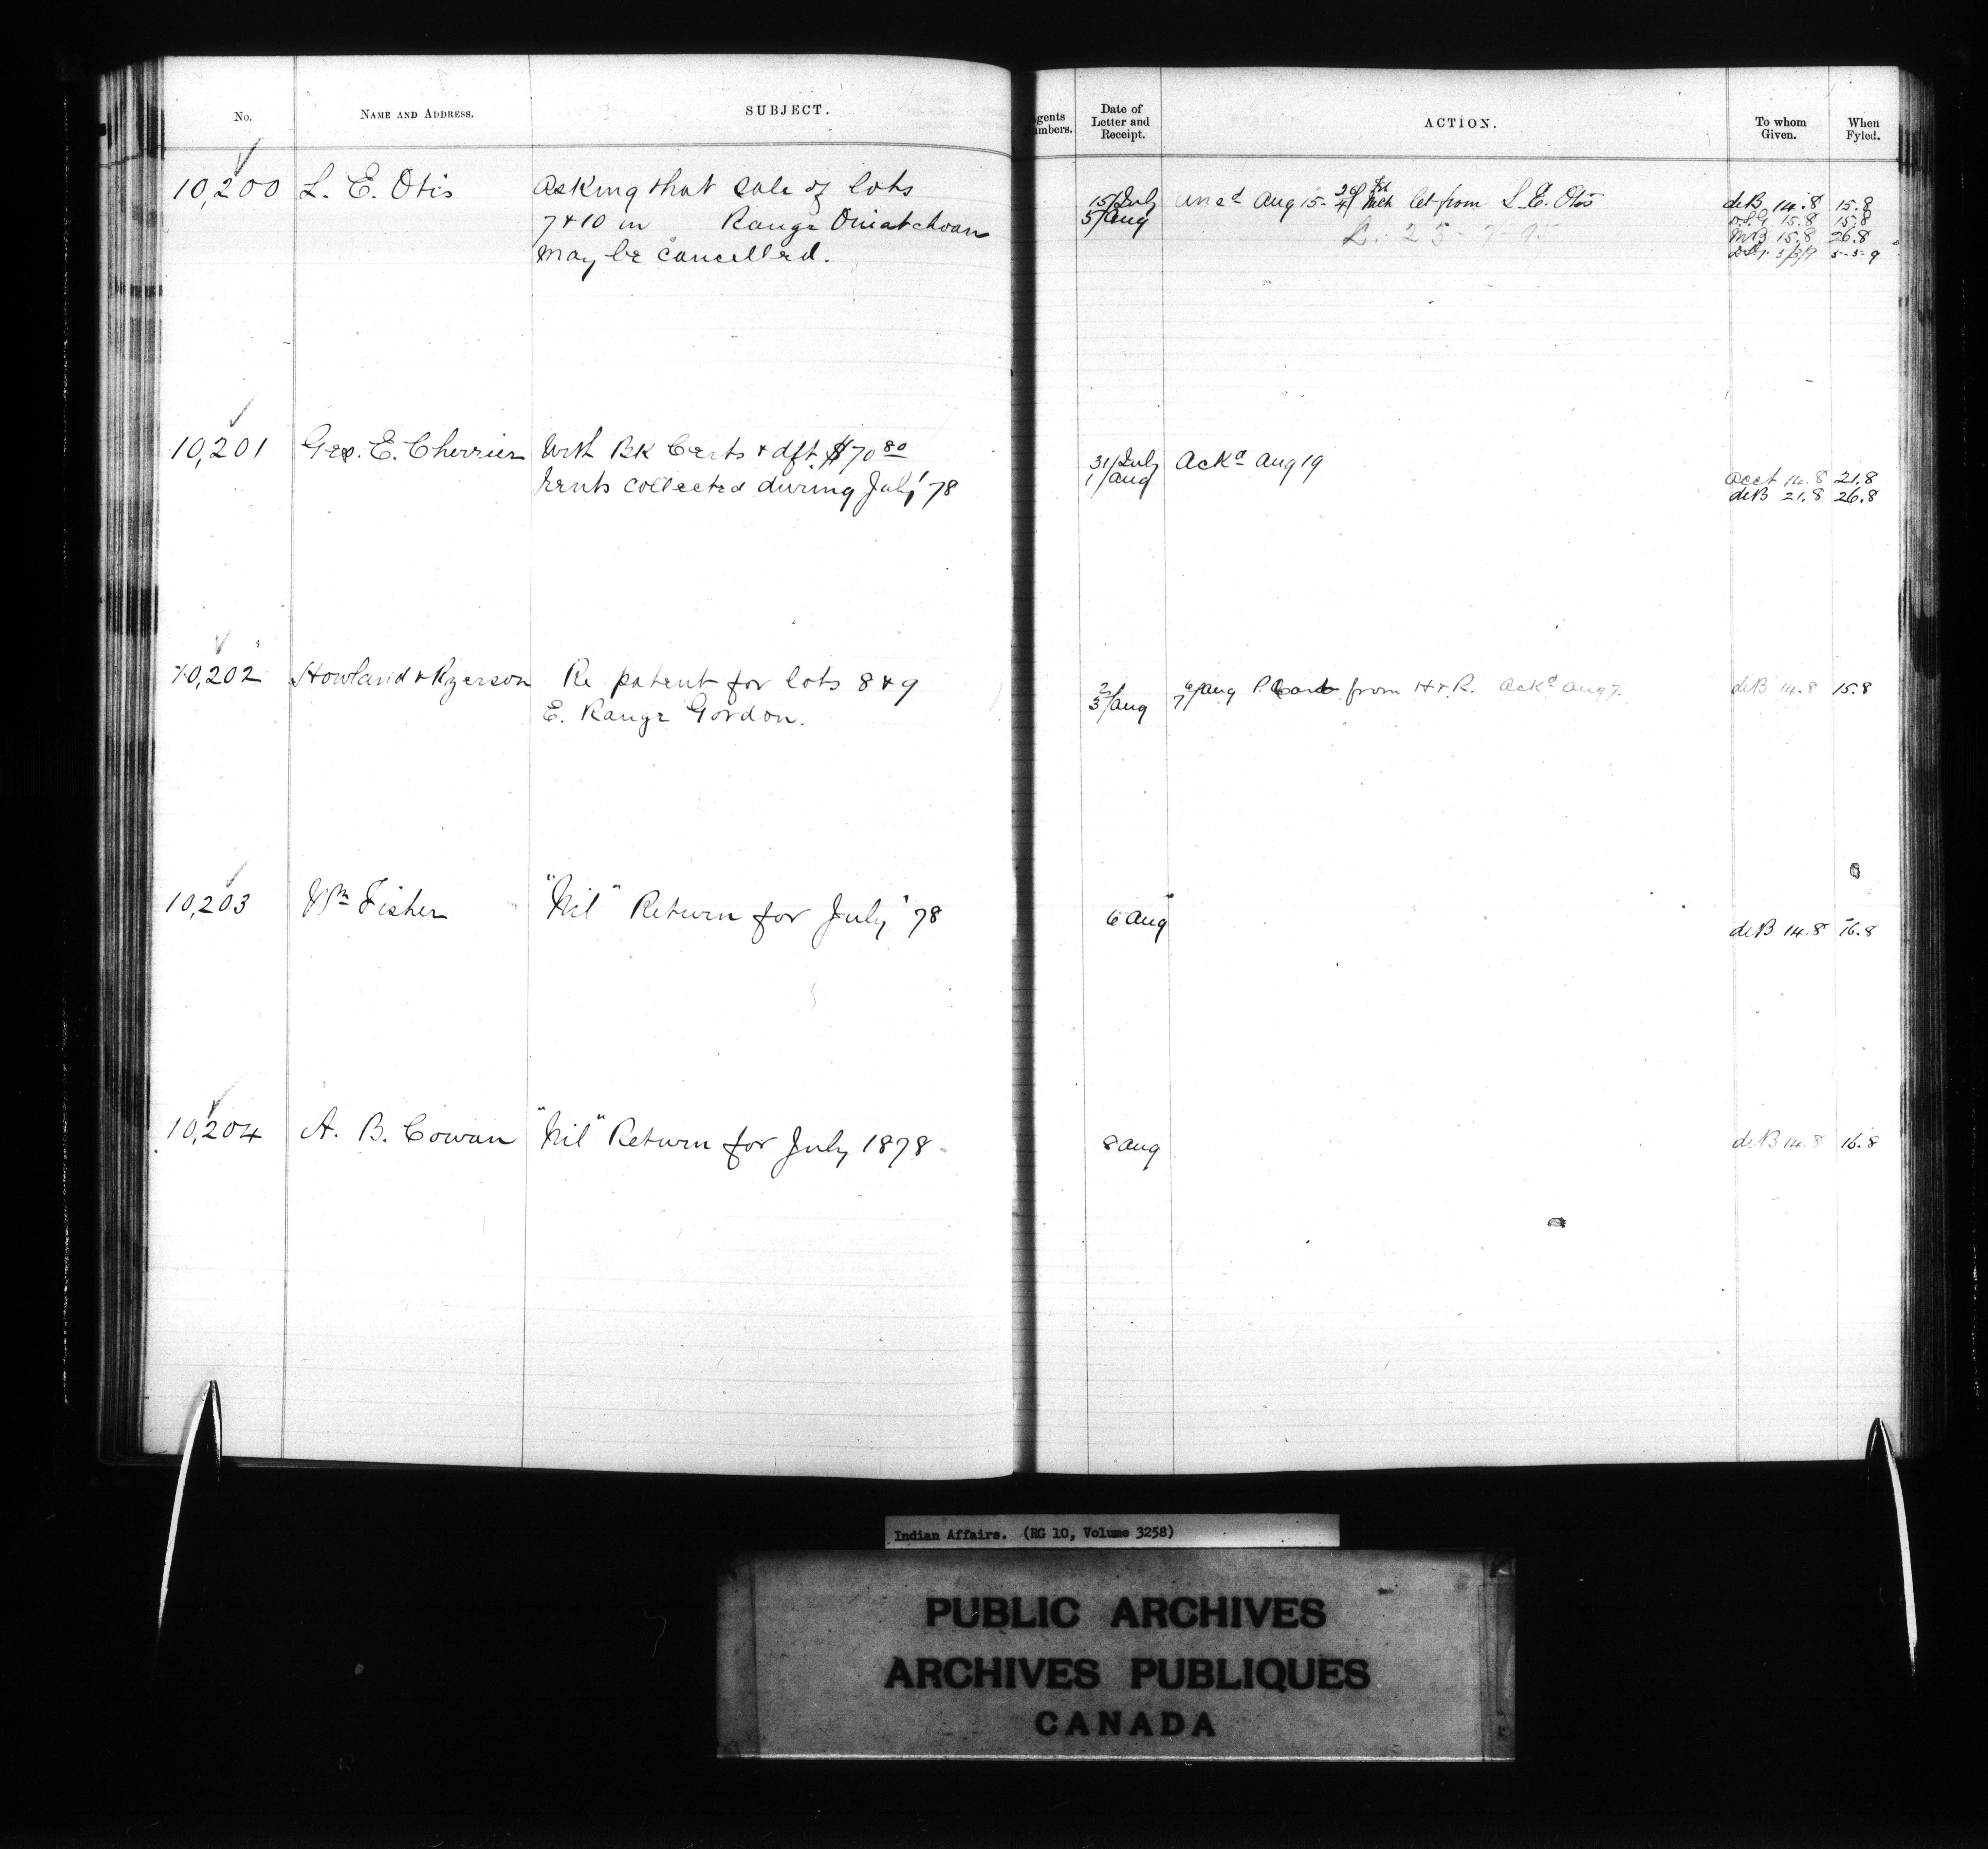 No. NAME AND ADDRESS. SUBJECT.
10,200 L. E. Otis Asking that sale of lots
7 & 10 in Range Ouiatchouan
may be cancelled.
10,201 Geo. E. Cherrier With Bk Certs & dft. $70 80
rents collected during July '78
10,202 Howland & Ryerson Re patent for lots 8 & 9
E. Range Gordon.
10,203 Wm Fisher "Nil" Return for July '78
10,204 A. B. Cowan "Nil" Return for July 1878
Agents Numbers. Date of Letter and Receipt. ACTION. To whom Given. When Fyled.
15/July Ansd Aug 15 - let from L. E. Otis deB 14.8 15.8
5/Aug 15.8 15.8
L. 23-7-95 15.8 26.8
5-5-9
31/July Ackd Aug 19
1/Aug Acct 14.8 21.8
deB 21.8 26.8
2/ 6/ Aug P. Card from H & R. Ackd Aug 7. deB 14.8 15.8
3/Aug 7/
6 Aug deB 14.8 16.8
8 Aug deB 14.8 16.8
Indian Affairs. (RG 10, Volume 3258)
PUBLIC ARCHIVES
ARCHIVES PUBLIQUES
CANADA